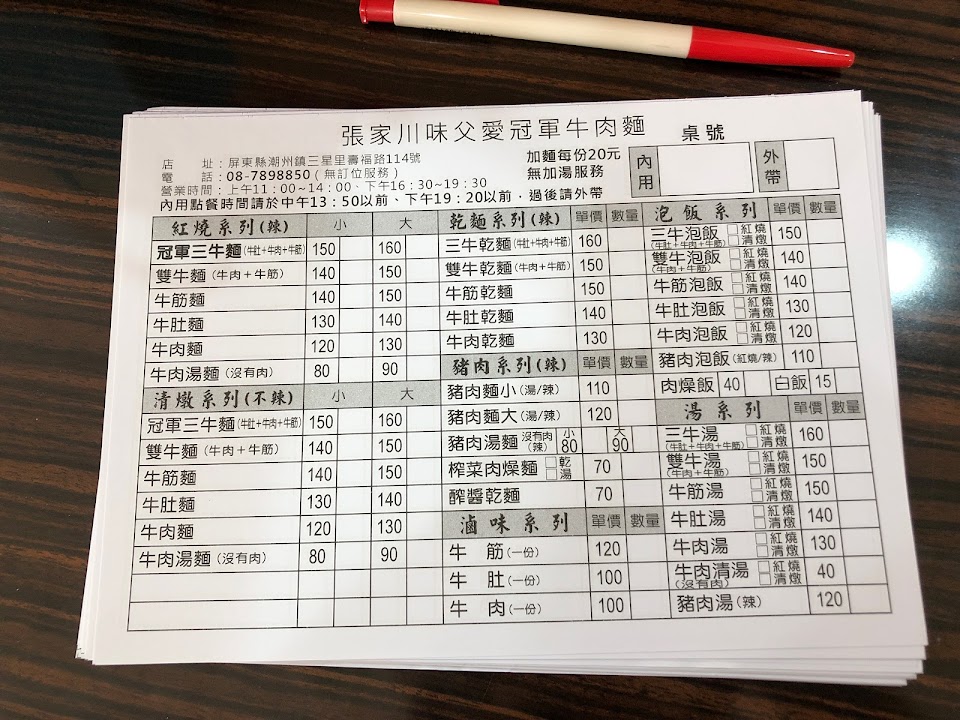 張家川味父愛冠軍牛肉麵 桌號
店 址：屏東縣潮州鎮三星里壽福路114號
電 話：08-7898850（無訂位服務）
營業時間：上午11：00~14：00、下午16：30~19：30
內用點餐時間請於中午13：50以前、下午19：20以前，過後請外帶
加麵每份20元
無加湯服務
內用
外帶
紅燒系列(辣) 小 大
冠軍三牛麵(牛肚+牛肉+牛筋) 150 160
雙牛麵(牛肉+牛筋) 140 150
牛筋麵 140 150
牛肚麵 130 140
牛肉麵 120 130
牛肉湯麵(沒有肉) 80 90
清燉系列(不辣) 小 大
冠軍三牛麵(牛肚+牛肉+牛筋) 150 160
雙牛麵(牛肉+牛筋) 140 150
牛筋麵 140 150
牛肚麵 130 140
牛肉麵 120 130
牛肉湯麵(沒有肉) 80 90
乾麵系列(辣) 單價 數量
三牛乾麵(牛肚+牛肉+牛筋) 160
雙牛乾麵(牛肉+牛筋) 150
牛筋乾麵 150
牛肚乾麵 140
牛肉乾麵 130
豬肉系列(辣) 單價 數量
豬肉麵小(湯/辣) 110
豬肉麵大(湯/辣) 120
豬肉湯麵 沒有肉(辣) 小80 大90
榨菜肉燥麵 □乾 □湯 70
醡醬乾麵 70
滷味系列 單價 數量
牛 筋(一份) 120
牛 肚(一份) 100
牛 肉(一份) 100
泡飯系列 單價 數量
三牛泡飯(牛肚+牛肉+牛筋) □紅燒 □清燉 150
雙牛泡飯(牛肉+牛筋) □紅燒 □清燉 140
牛筋泡飯 □紅燒 □清燉 140
牛肚泡飯 □紅燒 □清燉 130
牛肉泡飯 □紅燒 □清燉 120
豬肉泡飯(紅燒/辣) 110
肉燥飯 40 白飯 15
湯系列 單價 數量
三牛湯(牛肚+牛肉+牛筋) □紅燒 □清燉 160
雙牛湯(牛肉+牛筋) □紅燒 □清燉 150
牛筋湯 □紅燒 □清燉 150
牛肚湯 □紅燒 □清燉 140
牛肉湯 □紅燒 □清燉 130
牛肉清湯(沒有肉) □紅燒 □清燉 40
豬肉湯(辣) 120